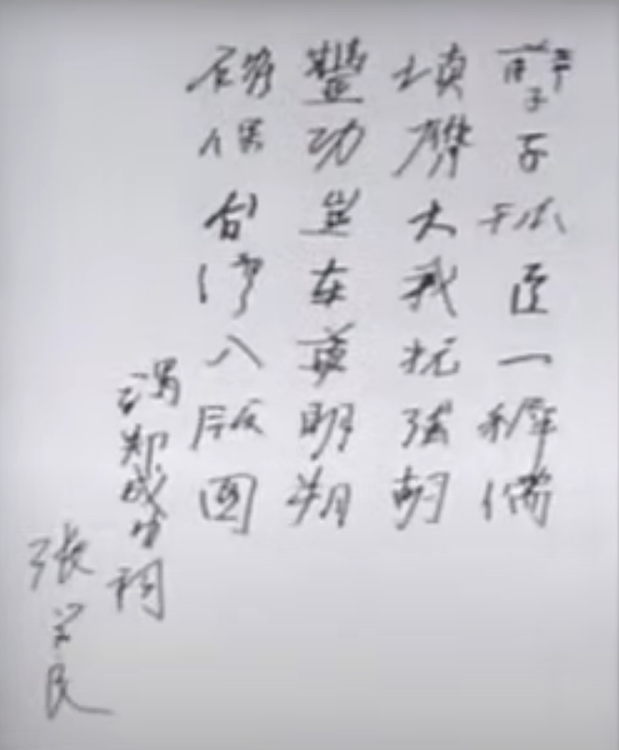 孽子孤臣一稚儒
填膺大我抗强胡
豐功岂在尊明朔
确保台湾入版图
谒郑成功祠
张学良